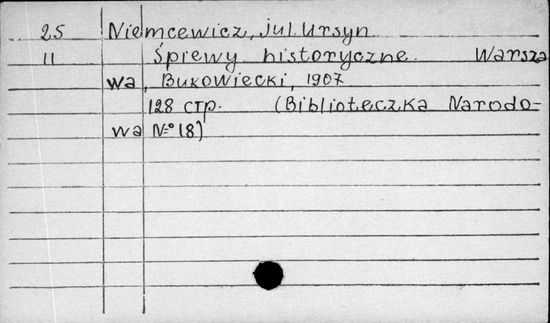 25 Niemcewicz, Jul. Ursyn
11 Śpiewy historyczne. Warsza
wa, Bukowiecki, 1907
128 стр. (Biblioteczka Narodo-
wa № 18)